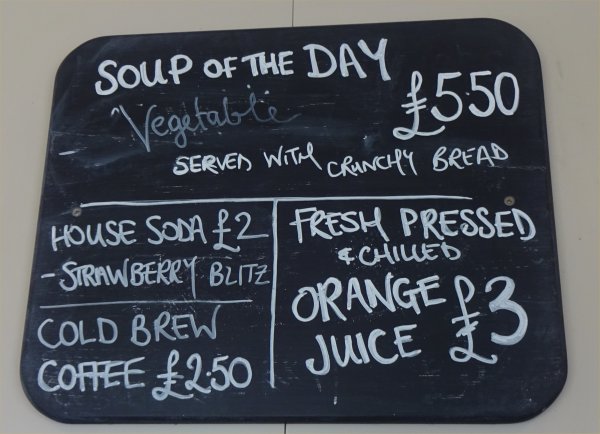 SOUP OF THE DAY
Vegetable
£5.50
SERVED WITH CRUNCHY BREAD
HOUSE SODA £2
- STRAWBERRY BLITZ
COLD BREW
COFFEE £2.50
FRESH PRESSED
& CHILLED
ORANGE
JUICE £3